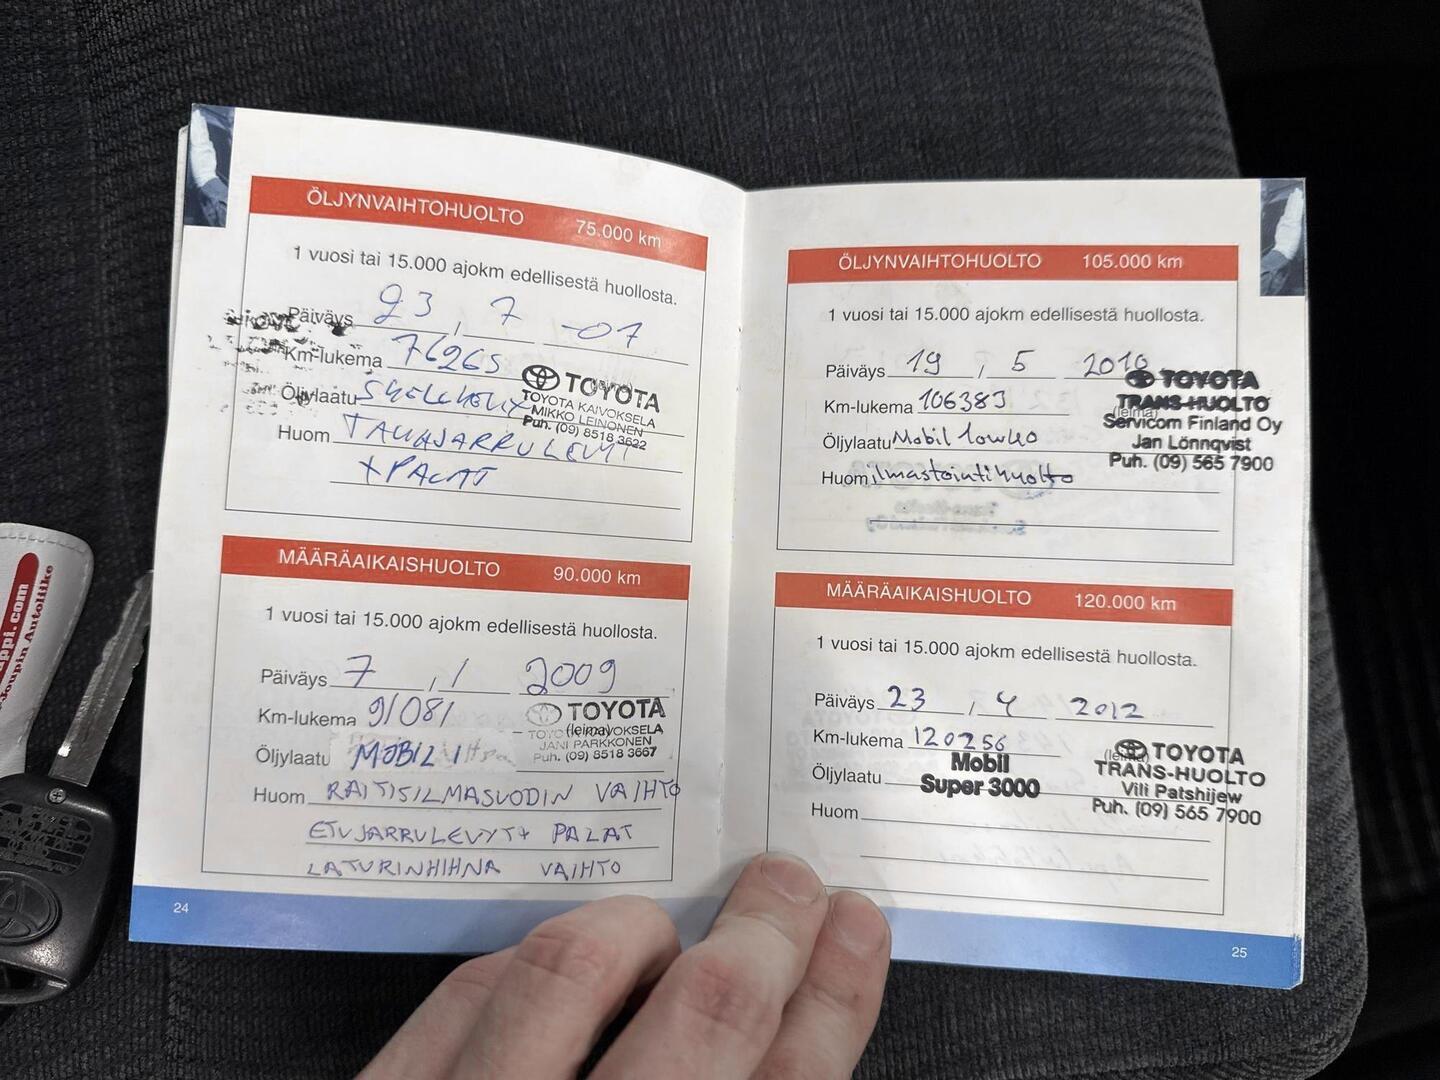 ÖLJYNVAIHTOHUOLTO 75.000 km
1 vuosi tai 15.000 ajokm edellisestä huollosta.
Päiväys 23 , 7 -07
Km-lukema 76265
TOYOTA
TOYOTA KAIVOKSELA
MIKKO LEINONEN
Puh. (09) 8518 3622
Öljylaatu SHELL HELIX
Huom TAKAJARRULEVYT
+ PALAT
MÄÄRÄAIKAISHUOLTO 90.000 km
1 vuosi tai 15.000 ajokm edellisestä huollosta.
Päiväys 7 , 1 2009
Km-lukema 91081
TOYOTA
(leima)
TOYOTA KAIVOKSELA
JANI PARKKONEN
Puh. (09) 8518 3667
Öljylaatu MOBIL 1
Huom RAITISILMASUODIN VAIHTO
ETUJARRULEVYT + PALAT
LATURINHIHNA VAIHTO
24
ÖLJYNVAIHTOHUOLTO 105.000 km
1 vuosi tai 15.000 ajokm edellisestä huollosta.
Päiväys 19 , 5 2010
Km-lukema 106383
(leima)
TOYOTA
TRANS-HUOLTO
Servicom Finland Oy
Jan Lönnqvist
Puh. (09) 565 7900
Öljylaatu Mobil 10w40
Huom ilmastointihuolto
MÄÄRÄAIKAISHUOLTO 120.000 km
1 vuosi tai 15.000 ajokm edellisestä huollosta.
Päiväys 23 , 4 2012
Km-lukema 120256
(leima)
TOYOTA
TRANS-HUOLTO
Vili Patshijew
Puh. (09) 565 7900
Öljylaatu Mobil
Super 3000
Huom
25
ppi.com
Joupin Autoliike